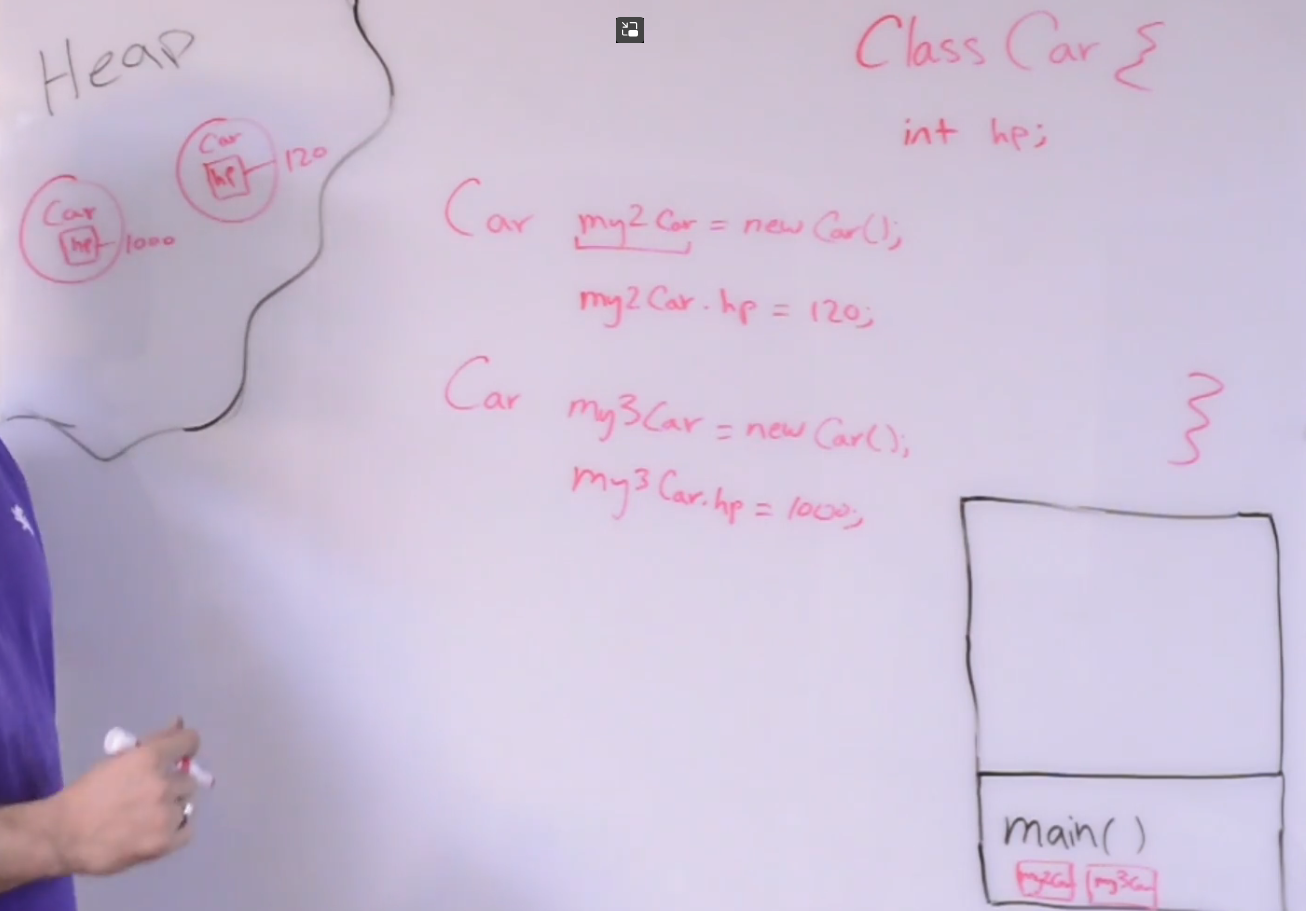 Heap
Car
hp 120
Car
hp 1000
Class Car {
int hp;
Car my2Car = new Car();
my2Car.hp = 120;
Car my3Car = new Car();
my3Car.hp = 1000;
}
main()
my2Car my3Car